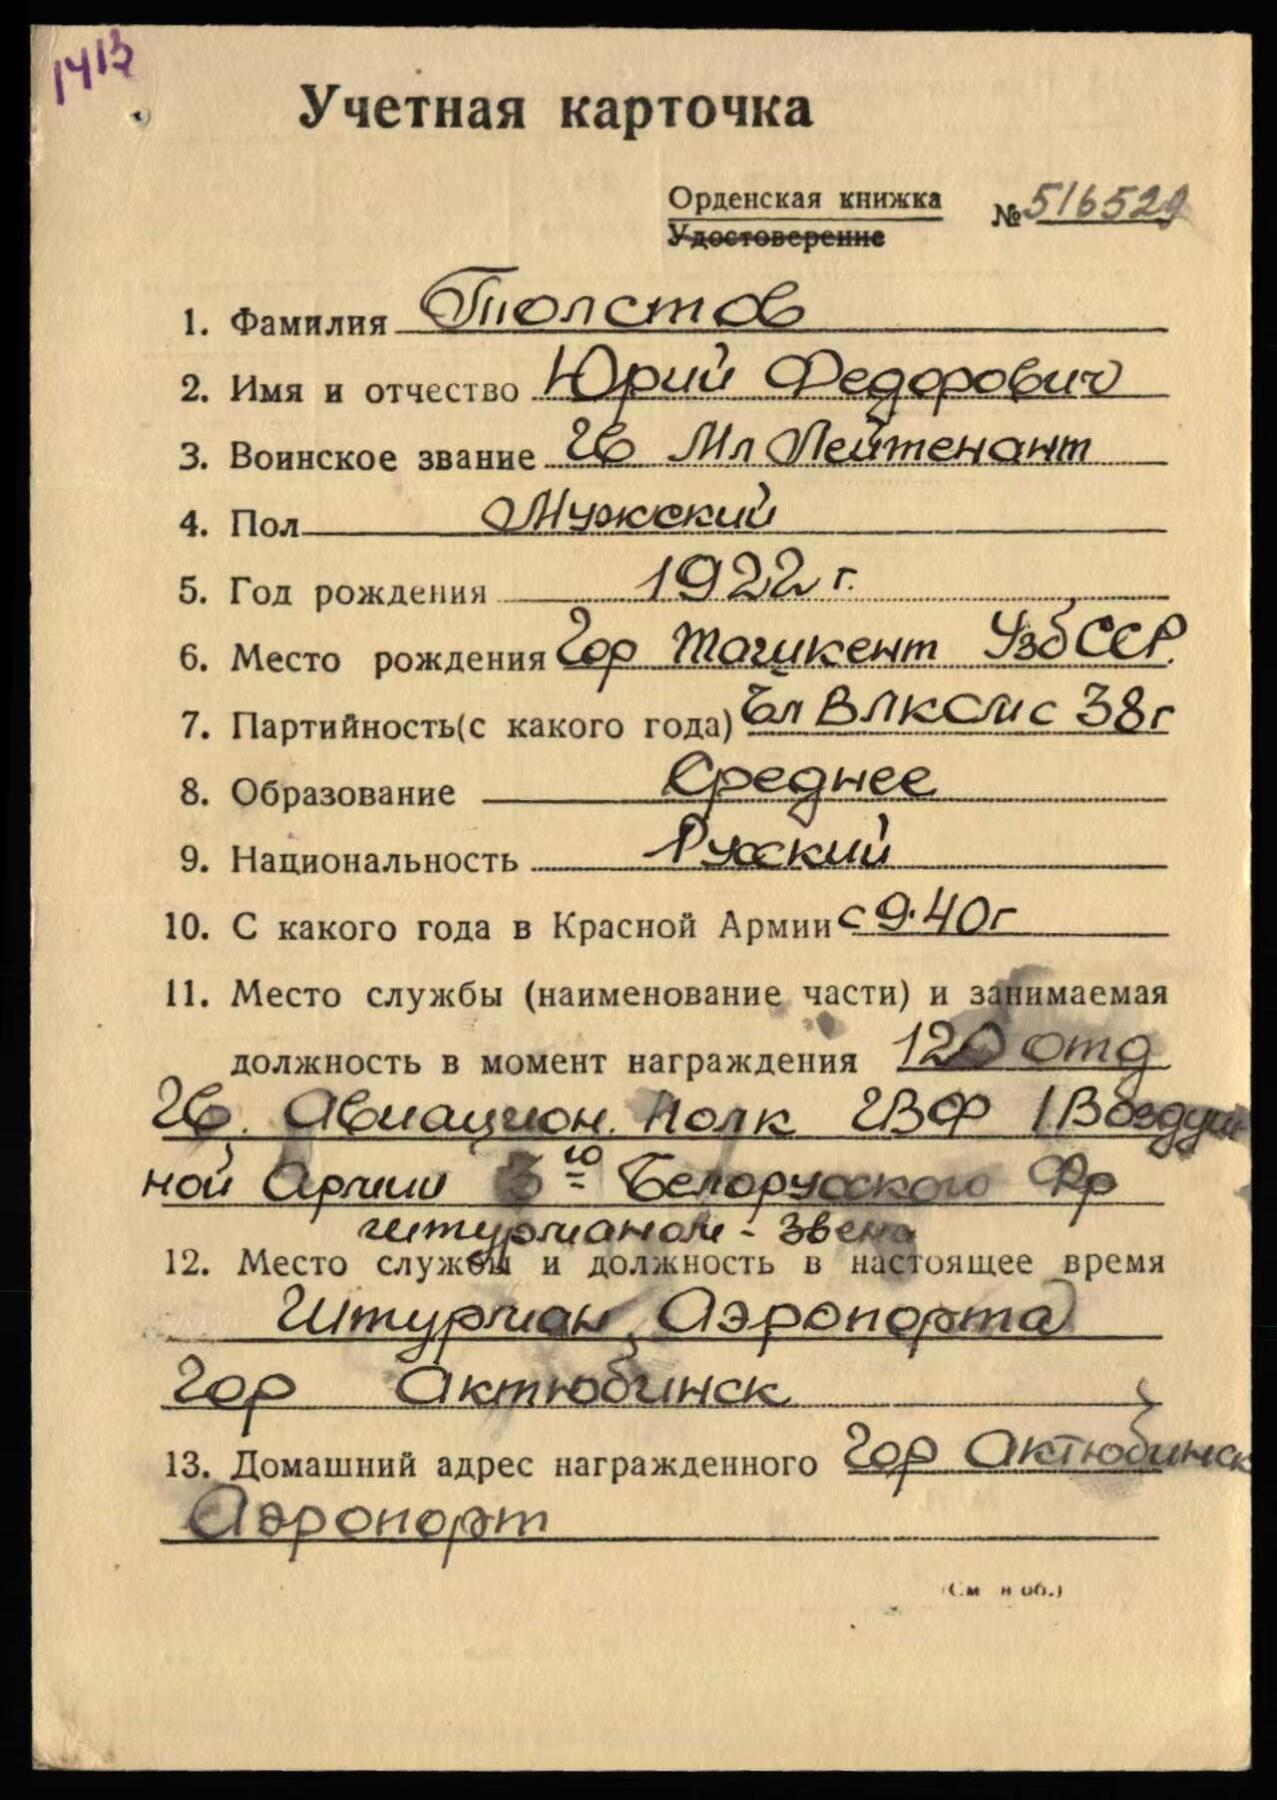 1413
Учетная карточка
Орденская книжка №516529
Удостоверение
1. Фамилия Толстов
2. Имя и отчество Юрий Федорович
3. Воинское звание Гв Мл Лейтенант
4. Пол Мужский
5. Год рождения 1922 г.
6. Место рождения Гор Ташкент УзбССР.
7. Партийность(с какого года) Чл ВЛКСМ с 38 г
8. Образование Среднее
9. Национальность Русский
10. С какого года в Красной Армии с 9.40 г
11. Место службы (наименование части) и занимаемая
должность в момент награждения 120 отд
Гв. Авиацион. Полк ГВФ 1 Воздуш
ной Армии 3го Белорусского Фр
штурманом - звена
12. Место службы и должность в настоящее время
Штурман Аэропорта
Гор Актюбинск
13. Домашний адрес награжденного Гор Актюбинск
Аэропорт
(См н об.)